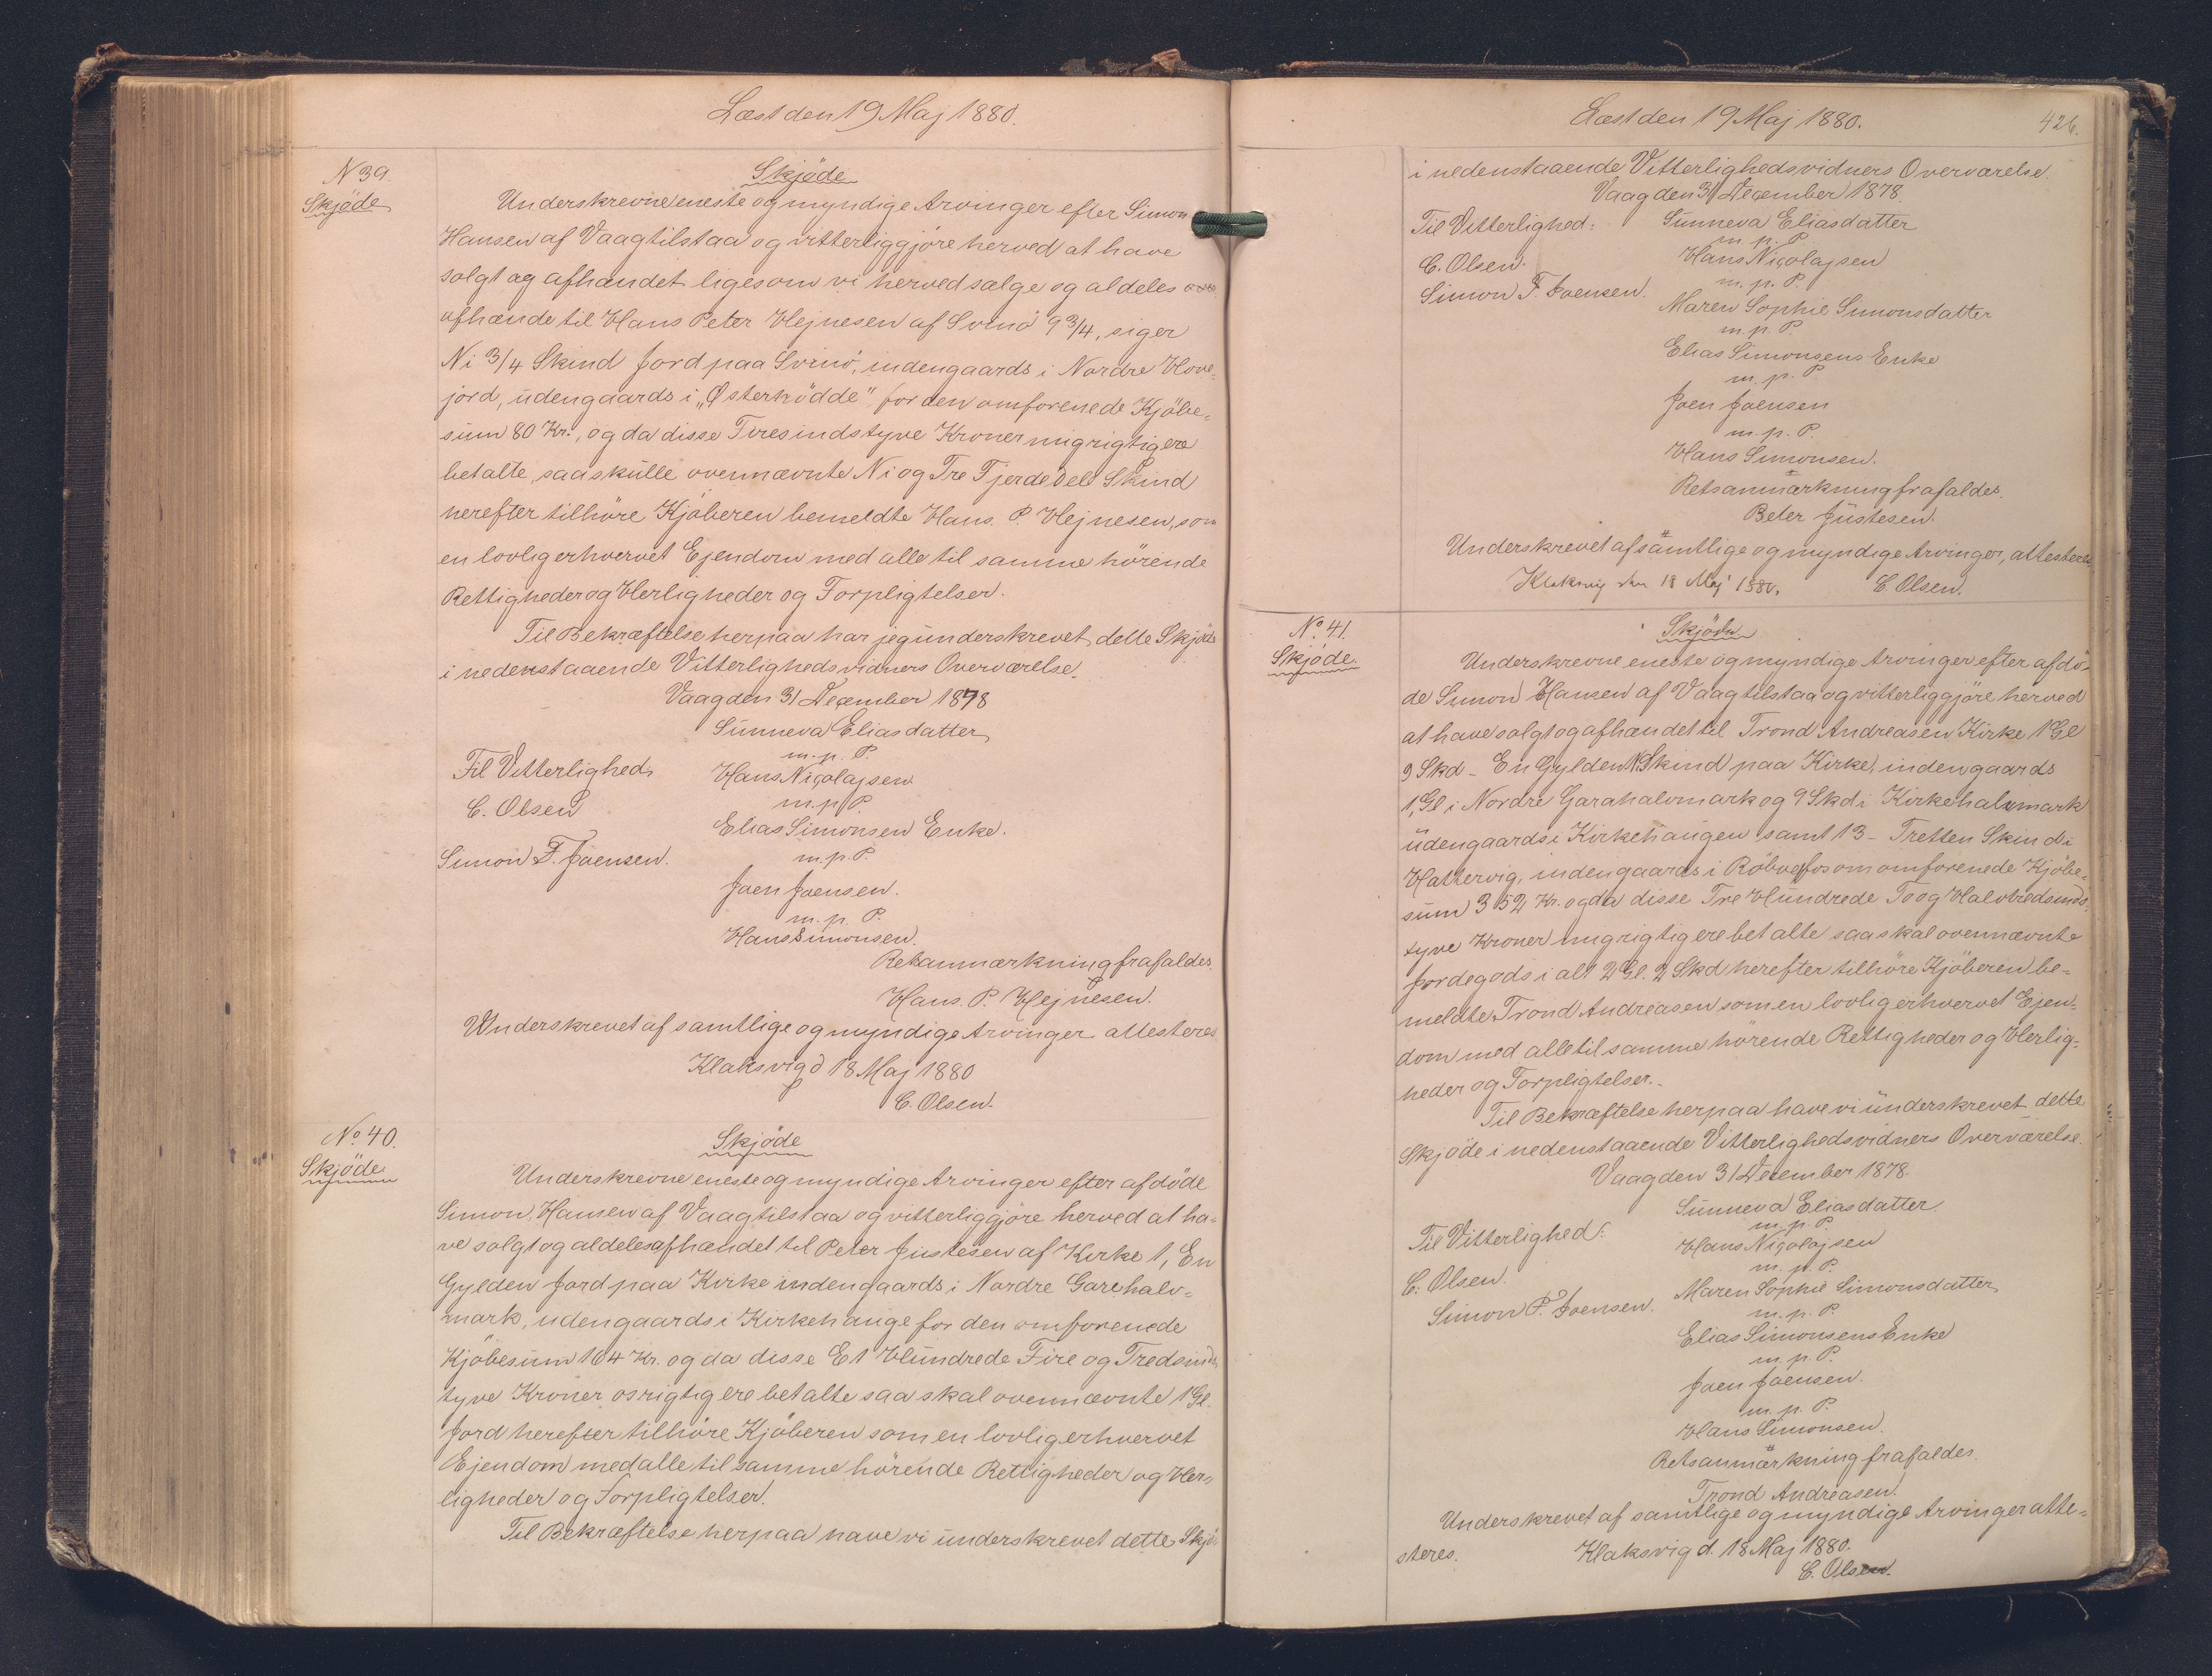 Læst den 19 Maj 1880.
N 39.
Skjöde
Skjöde
Underskrevne eneste og myndige Arvinger efter Simon
Hansen af Vaag tilstaa og vitterliggjöre herved at have
solgt og afhændet ligesom vi herved sælge og aldeles
afhænde til Hans Peter Hejnesen af Svinö 9 3/4, siger
Ni 3/4 Skind Jord paa Svinö, indengaards i Nordre Hove-
jord, udengaards i „Østerhödde" for den omforenede Kjöbe-
sum 80 Kr., og da disse Firesindstyve Kroner mig rigtig ere
betalte, saa skulle ovennævnte Ni og Tre Fjerdedele Skind
herefter tilhöre Kjöberen bemeldte Hans P. Hejnesen, som
en lovlig erhvervet Ejendom med alle til samme hörende
Rettigheder og Herligheder og Forpligtelser.
Til Bekræftelse herpaa har jeg underskrevet dette Skjöde
i nedenstaaende Vitterlighedsvidners Overværelse.
Vaag den 31 December 1878
Sunneva Eliasdatter
m. p. P.
Til Vitterlighed:
Hans Nicolajsen
m. p. P.
C. Olsen
Elias Simonsen Enke.
m. p. P.
Simon F. Joensen.
Joen Joensen.
m. p. P.
Hans Simonsen.
Retsanmærkning frafaldes.
Hans. P. Hejnesen.
Underskrevet af samtlige og myndige Arvinger attesteres
Klaksvig d 18 Maj 1880
C. Olsen.
No. 40.
Skjöde
Skjöde
Underskrevne eneste og myndige Arvinger efter afdöde
Simon Hansen af Vaag tilstaa og vitterliggjöre herved at ha-
ve solgt og aldeles afhændet til Peter Justesen af Kirke 1, En
Gylden Jord paa Kirke indengaards i Nordre Garehalv-
mark, udengaards i Kirkehauge for den omforenede
Kjöbesum 164 Kr. og da disse Et Hundrede Fire og Tredsinds-
tyve Kroner os rigtig ere betalte saa skal ovennævnte 1 Gl.
Jord herefter tilhöre Kjöberen som en lovlig erhvervet
Ejendom med alle til samme hörende Rettigheder og Her-
ligheder og Forpligtelser.
Til Bekræftelse herpaa have vi underskrevet dette Skjö-
Læst den 19 Maj 1880.
426.
i nedenstaaende Vitterlighedsvidners Overværelse.
Vaag den 31 December 1878.
Til Vitterlighed:
Sunneva Eliasdatter
m. p. P.
C. Olsen.
Hans Nicolajsen
m. p. P.
Simon F. Joensen.
Maren Sophie Simonsdatter
m. p. P.
Elias Simonsens Enke
m. p. P.
Joen Joensen
m. p. P.
Hans Simonsen.
Retsanmærkning frafaldes.
Peter Justesen.
Underskrevet af samtlige og myndige Arvinger, attesteres
Klaksvig den 18 Maj 1880. C. Olsen.
No. 41.
Skjöde.
Skjöde
Underskrevne eneste og myndige Arvinger efter afdö-
de Simon Hansen af Vaag tilstaa og vitterliggjöre herved
at have solgt og afhændet til Trond Andreasen Kirke 1 Gl
9 Skd - En Gylden Ni Skind paa Kirke, indengaards
1 Gl i Nordre Garahalvmark og 9 Skd i Kirkehalvmark
udengaards i Kirkehaugen samt 13 - Tretten Skind i
Hattervig, indengaards i for omforenede Kjöbe-
sum 352 Kr. og da disse Tre Hundrede To og Halvtredsinds-
tyve Kroner mig rigtig ere betalte saa skal ovennævnte
Jordegods i alt 2 Gl. 2 Skd herefter tilhöre Kjöberen be-
meldte Trond Andreasen som en lovlig erhvervet Ejen-
dom med alle til samme hörende Rettigheder og Herlig-
heder og Forpligtelser.
Til Bekræftelse herpaa have vi underskrevet dette
Skjöde i nedenstaaende Vitterlighedsvidners Overværelse.
Vaag den 31 December 1878.
Sunneva Eliasdatter
m. p. P.
Til Vitterlighed:
Hans Nicolajsen
m. p. P.
C. Olsen.
Maren Sophie Simonsdatter
m. p. P.
Simon P. Joensen.
Elias Simonsens Enke
m. p. P.
Joen Joensen.
m. p. P.
Hans Simonsen.
Retsanmærkning frafaldes.
Trond Andreasen.
Underskrevet af samtlige og myndige Arvinger atte-
steres. Klaksvig d. 18 Maj 1880.
C. Olsen.